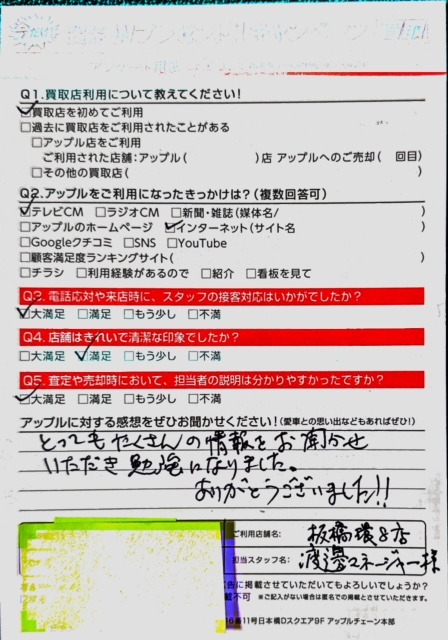 Q1.買取店利用について教えてください!
□買取店を初めてご利用
□過去に買取店をご利用されたことがある
□アップル店をご利用
ご利用された店舗:アップル( )店 アップルへのご売却( 回目)
□その他の買取店( )
Q2.アップルをご利用になったきっかけは?(複数回答可)
□テレビCM □ラジオCM □新聞・雑誌(媒体名/ )
□アップルのホームページ □インターネット(サイト名 )
□Googleクチコミ □SNS □YouTube
□顧客満足度ランキングサイト( )
□チラシ □利用経験があるので □紹介 □看板を見て
Q3.電話応対や来店時に、スタッフの接客対応はいかがでしたか?
□大満足 □満足 □もう少し □不満
Q4.店舗はきれいで清潔な印象でしたか?
□大満足 □満足 □もう少し □不満
Q5.査定や売却時において、担当者の説明は分かりやすかったですか?
□大満足 □満足 □もう少し □不満
アップルに対する感想をぜひお聞かせください!(愛車との思い出などもあればぜひ!)
とってもたくさんの情報をお聞かせ
いただき勉強になりました。
ありがとうございました!!
ご利用店舗名: 板橋環8店
担当スタッフ名: 渡邊マネージャー様
に掲載させていただいてもよろしいでしょうか?
載不可 ※ご記入がない場合は匿名での掲載とさせていただきます。
11号日本橋Dスクエア9F アップルチェーン本部